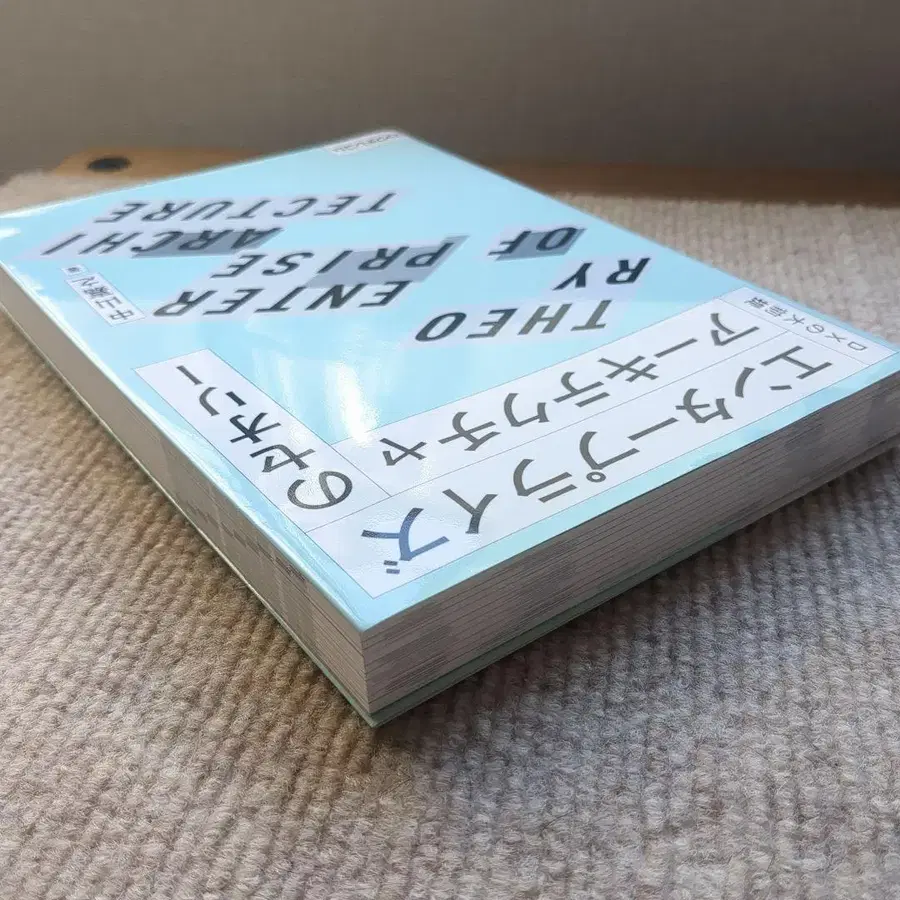 DXの大前提
エンタープライズ
アーキテクチャ
のセオリー
THEO
RY
OF
ENTER
PRISE
ARCHI
TECTURE
中山嘉之 著